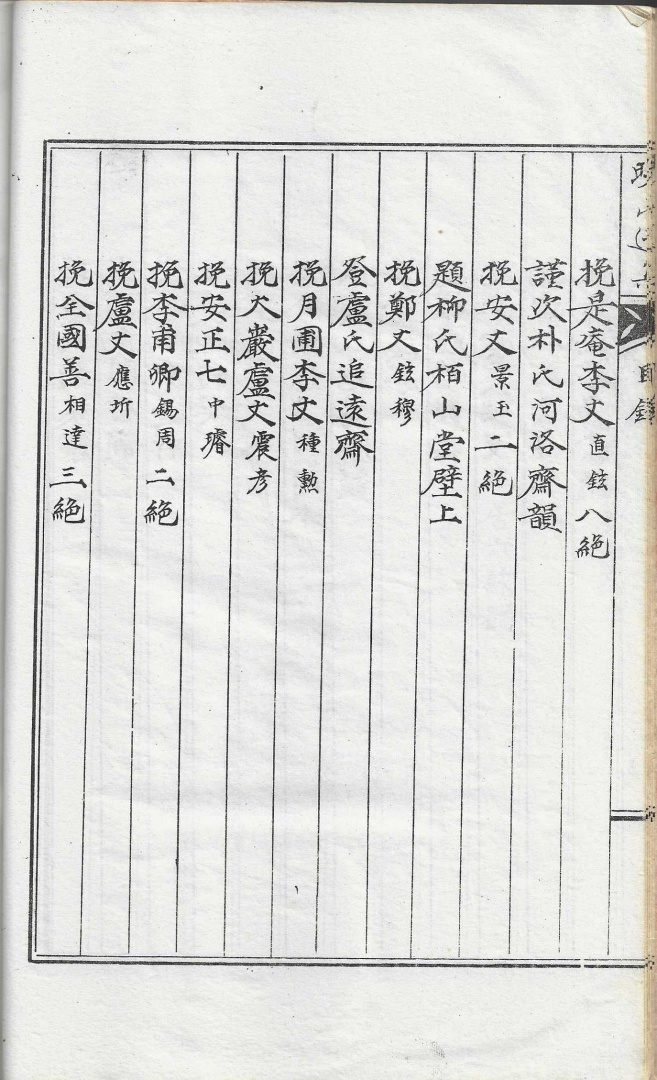 目錄
挽是庵李丈直鉉八絕
謹次朴氏河洛齋韻
挽安丈景玉二絕
題柳氏栢山堂壁上
挽鄭丈鉉穆
登盧氏追遠齋
挽月圃李丈種勲
挽大巖盧丈震彦
挽安正七中璿
挽李甫卿錫周二絕
挽盧丈應圻
挽全國善相達三絕